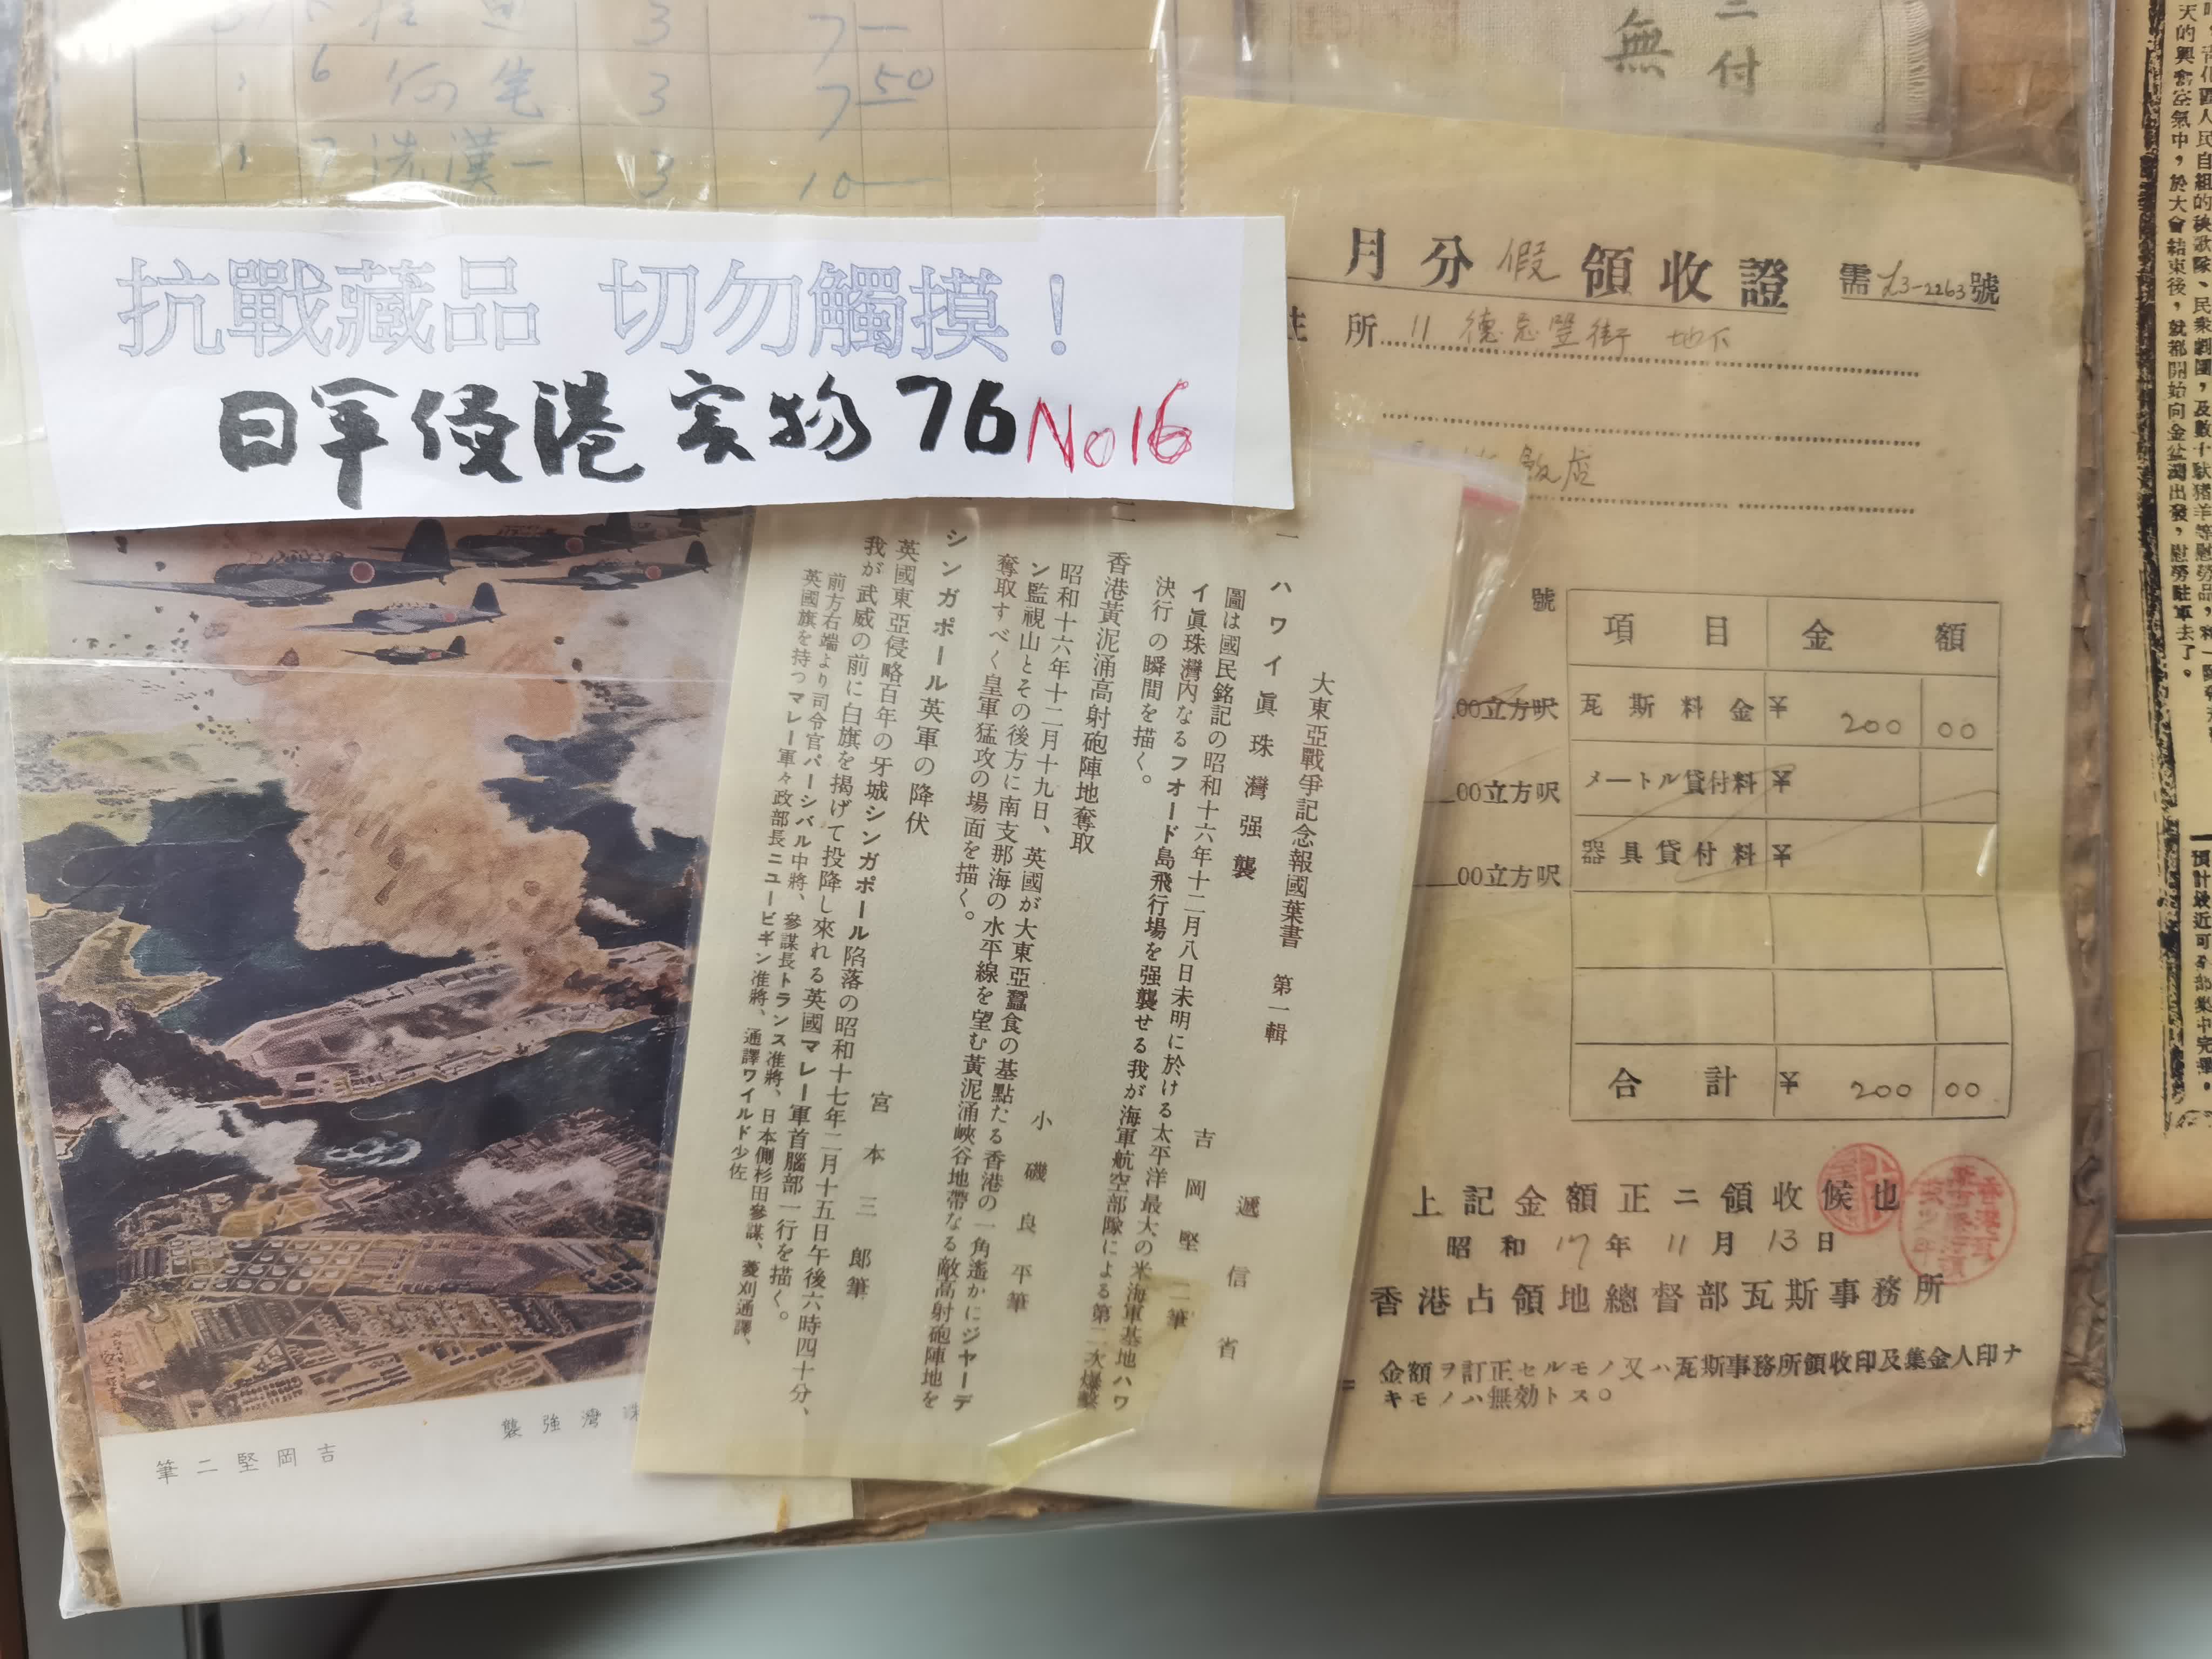 3 7—
6 何 笔 3 7 50
7 冼漢一 3 10—
無 二付
抗戰藏品 切勿觸摸！
日军侵港实物 76 No 16
大東亞戰爭記念報國葉書 第一輯
遞信省
一 ハワイ眞珠灣强襲
吉岡堅二筆
圖は國民銘記の昭和十六年十二月八日未明に於ける太平洋最大の米海軍基地ハワ
イ眞珠灣内なるフオード島飛行場を强襲せる我が海軍航空部隊による第二次爆擊
決行の瞬間を描く。
二 香港黃泥涌高射砲陣地奪取
小磯良平筆
昭和十六年十二月十九日、英國が大東亞蠶食の基點たる香港の一角遙かにジヤーデ
ン監視山とその後方に南支那海の水平線を望む黃泥涌峽谷地帶なる敵高射砲陣地を
奪取すべく皇軍猛攻の場面を描く。
シンガポール英軍の降伏
宮本三郎筆
英國東亞侵略百年の牙城シンガポール陷落の昭和十七年二月十五日午後六時四十分、
我が武威の前に白旗を揭げて投降し來れる英國マレー軍首腦部一行を描く。
前方右端より司令官パーシバル中將、參謀長トランス准將、日本側杉田參謀、菱刈通譯、
英國旗を持つマレー軍々政部長ニユービギン准將、通譯ワイルド少佐
珠灣强襲
吉岡堅二筆
月分假領收證 需 23-2263號
住所 11 德忌笠街 地下
飯店
號
項目 金額
00立方呎 瓦斯料金 ¥ 200 00
00立方呎 メートル貸付料 ¥
00立方呎 器具貸付料 ¥
合計 ¥ 200 00
上記金額正ニ領收候也
昭和 17年 11月 13日
香港占領地總督部瓦斯事務所
金額ヲ訂正セルモノ又ハ瓦斯事務所領收印及集金人印ナ
キモノハ無効トス。
人民自組的秧歌隊、民衆劇團，及數十馱猪羊等慰勞品，
天的興奮空氣中，於大會結束後，就都開始向金盆灣出發，慰勞駐軍去了。
預計最近可全部集中完畢。